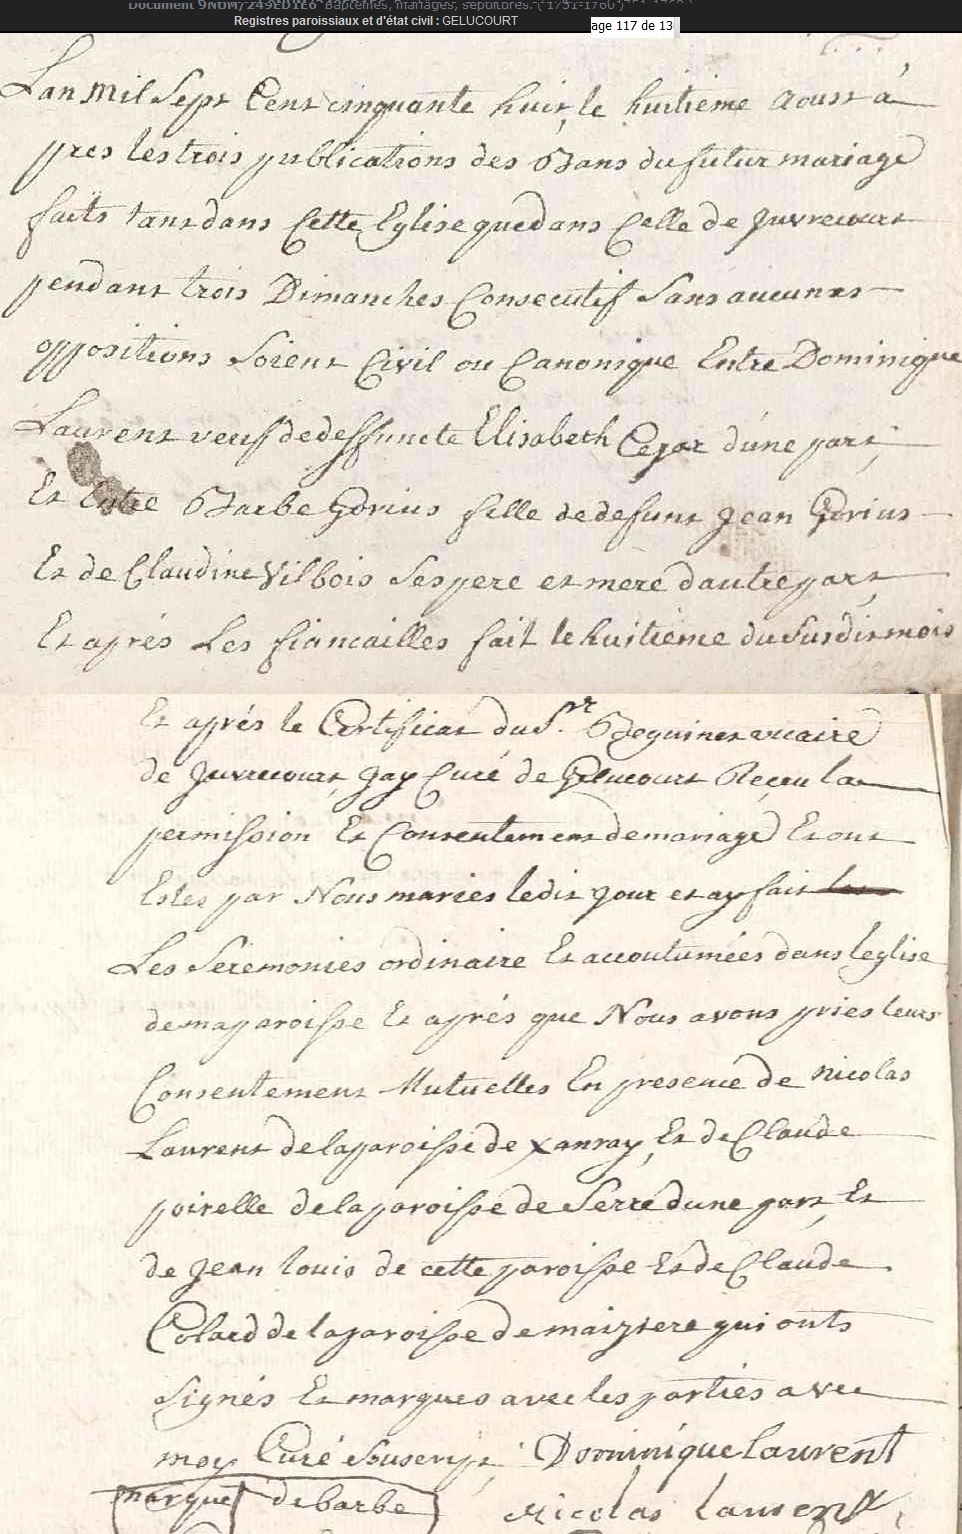 Document 9NUM/249ED1E6 Baptêmes, mariages, sépultures. (1751-1760)
Registres paroissiaux et d'état civil : GELUCOURT
age 117 de 13
Lan Mil Sept Cent cinquante huit, le huitieme aoust a
pres les trois publications des Bans du futur mariage
faits tant dans Cette Eglise que dans Celle de Juvrecourt
pendant trois Dimanches Consecutif Sans aucunes
oppositions Soient Civil ou Canonique Entre Dominique
Laurent veuf de deffuncte Elisabeth Cezar d'une part,
Et Entre Barbe Gorius fille de defunt Jean Gorius
Et de Claudine Vilbois Ses pere et mere dautre part,
Et aprés Les fiancailles fait le huitieme du Susdit mois
Et aprés le Certificat du Sr. Beguinet vicaire
de Juvrecourt, Jay Curé de Gelucourt Reçeu la
permission Et Consentement de mariage Et ont
Estes par Nous mariés ledit Jour et ay fait les
Les Seremonies ordinaire Et accoutumées dans leglise
de ma paroisse Et aprés que Nous avons pries leurs
Consentement Mutuelles En presence de Nicolas
Laurent de la paroisse de Xanray, Et de Claude
poirelle de la paroisse de Serre dune part, Et
de Jean louis de cette paroisse Et de Claude
Colard de la paroisse de maiziere qui onts
Signés Et marques avec les parties avec
moy Curé Sousigné Dominique laurent
marque de barbe Nicolas laurent